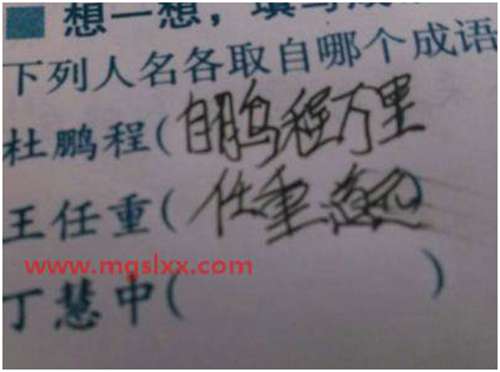 想一想，填写成
下列人名各取自哪个成语
杜鹏程(鹏程万里
王任重(任重
www.mgslxx.com
丁慧中(　　)